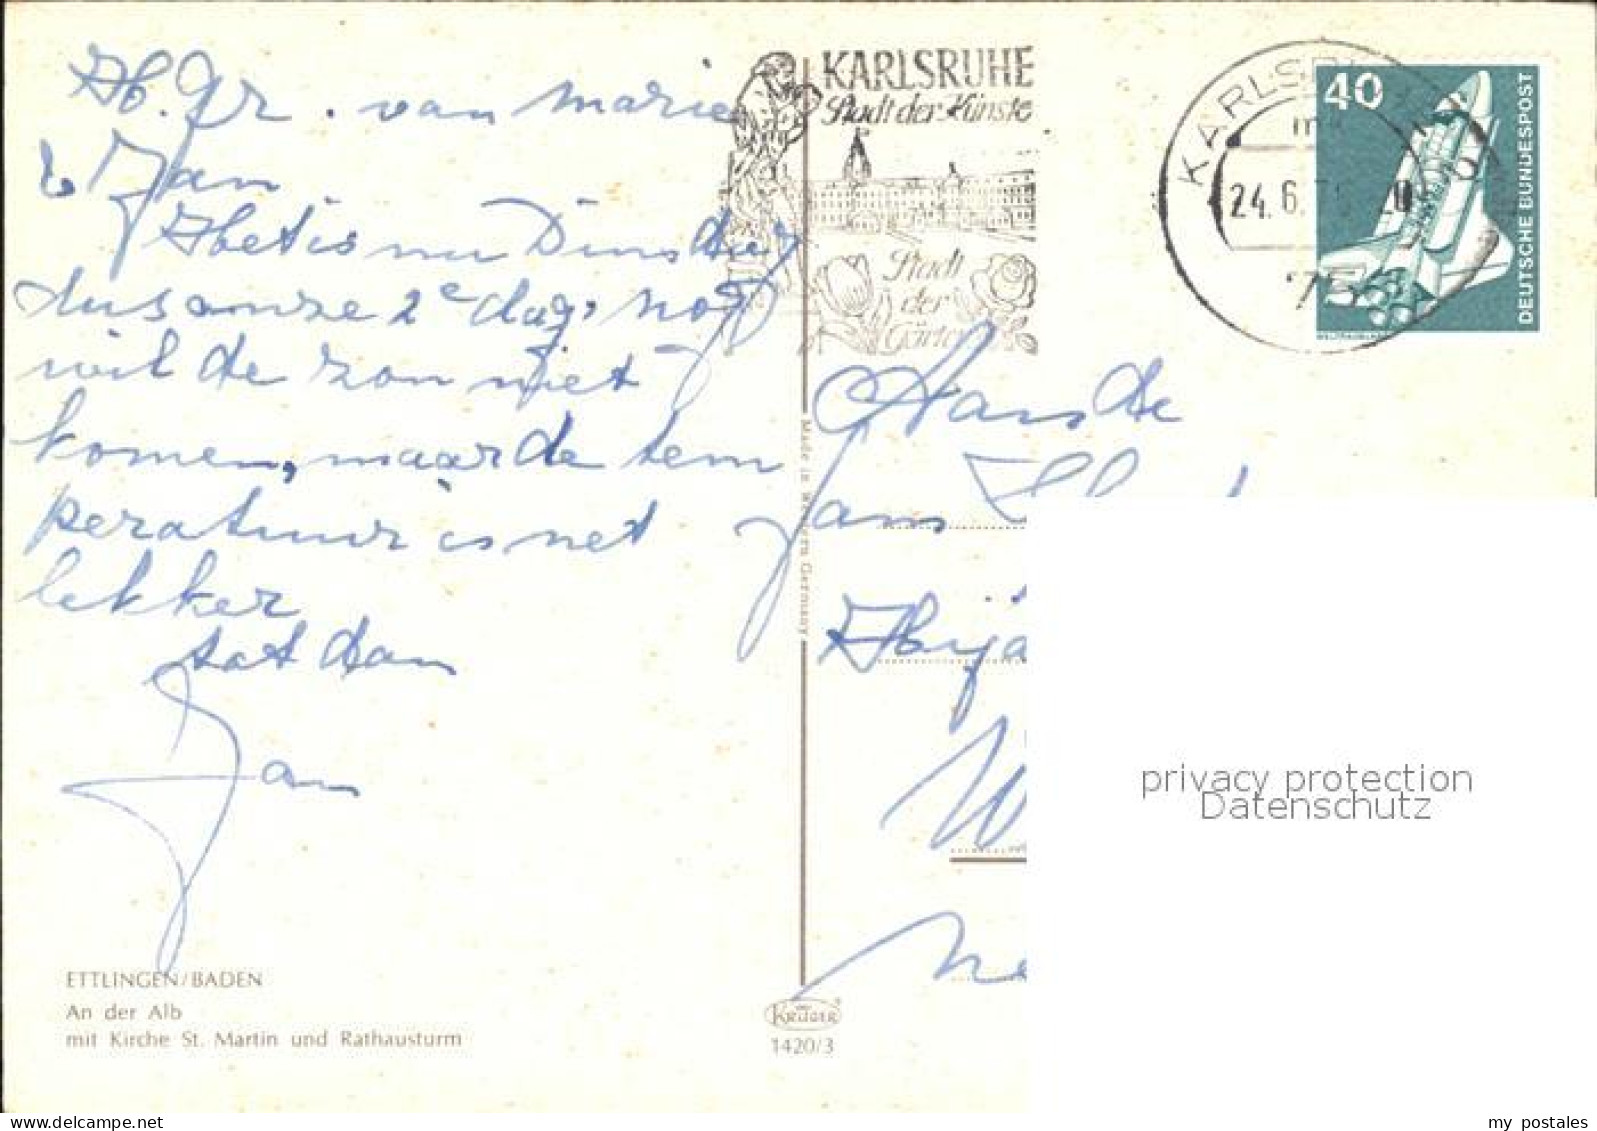 H. Gr. van Marie
& Jan
Het is nu Dinsdag
dus onze 2e dag, nog
wil de zon niet
komen, maar de tem
peratuur is net
lekker
tot dan
Jan
ETTLINGEN/BADEN
An der Alb
mit Kirche St. Martin und Rathausturm
KARLSRUHE
Stadt der Künste
Stadt
der
Gärten
KARLSRUHE
24.6.
75
40
DEUTSCHE BUNDESPOST
Made in Western Germany
Aan de
Jans
KRÜGER
1420/3
privacy protection
Datenschutz
my postales